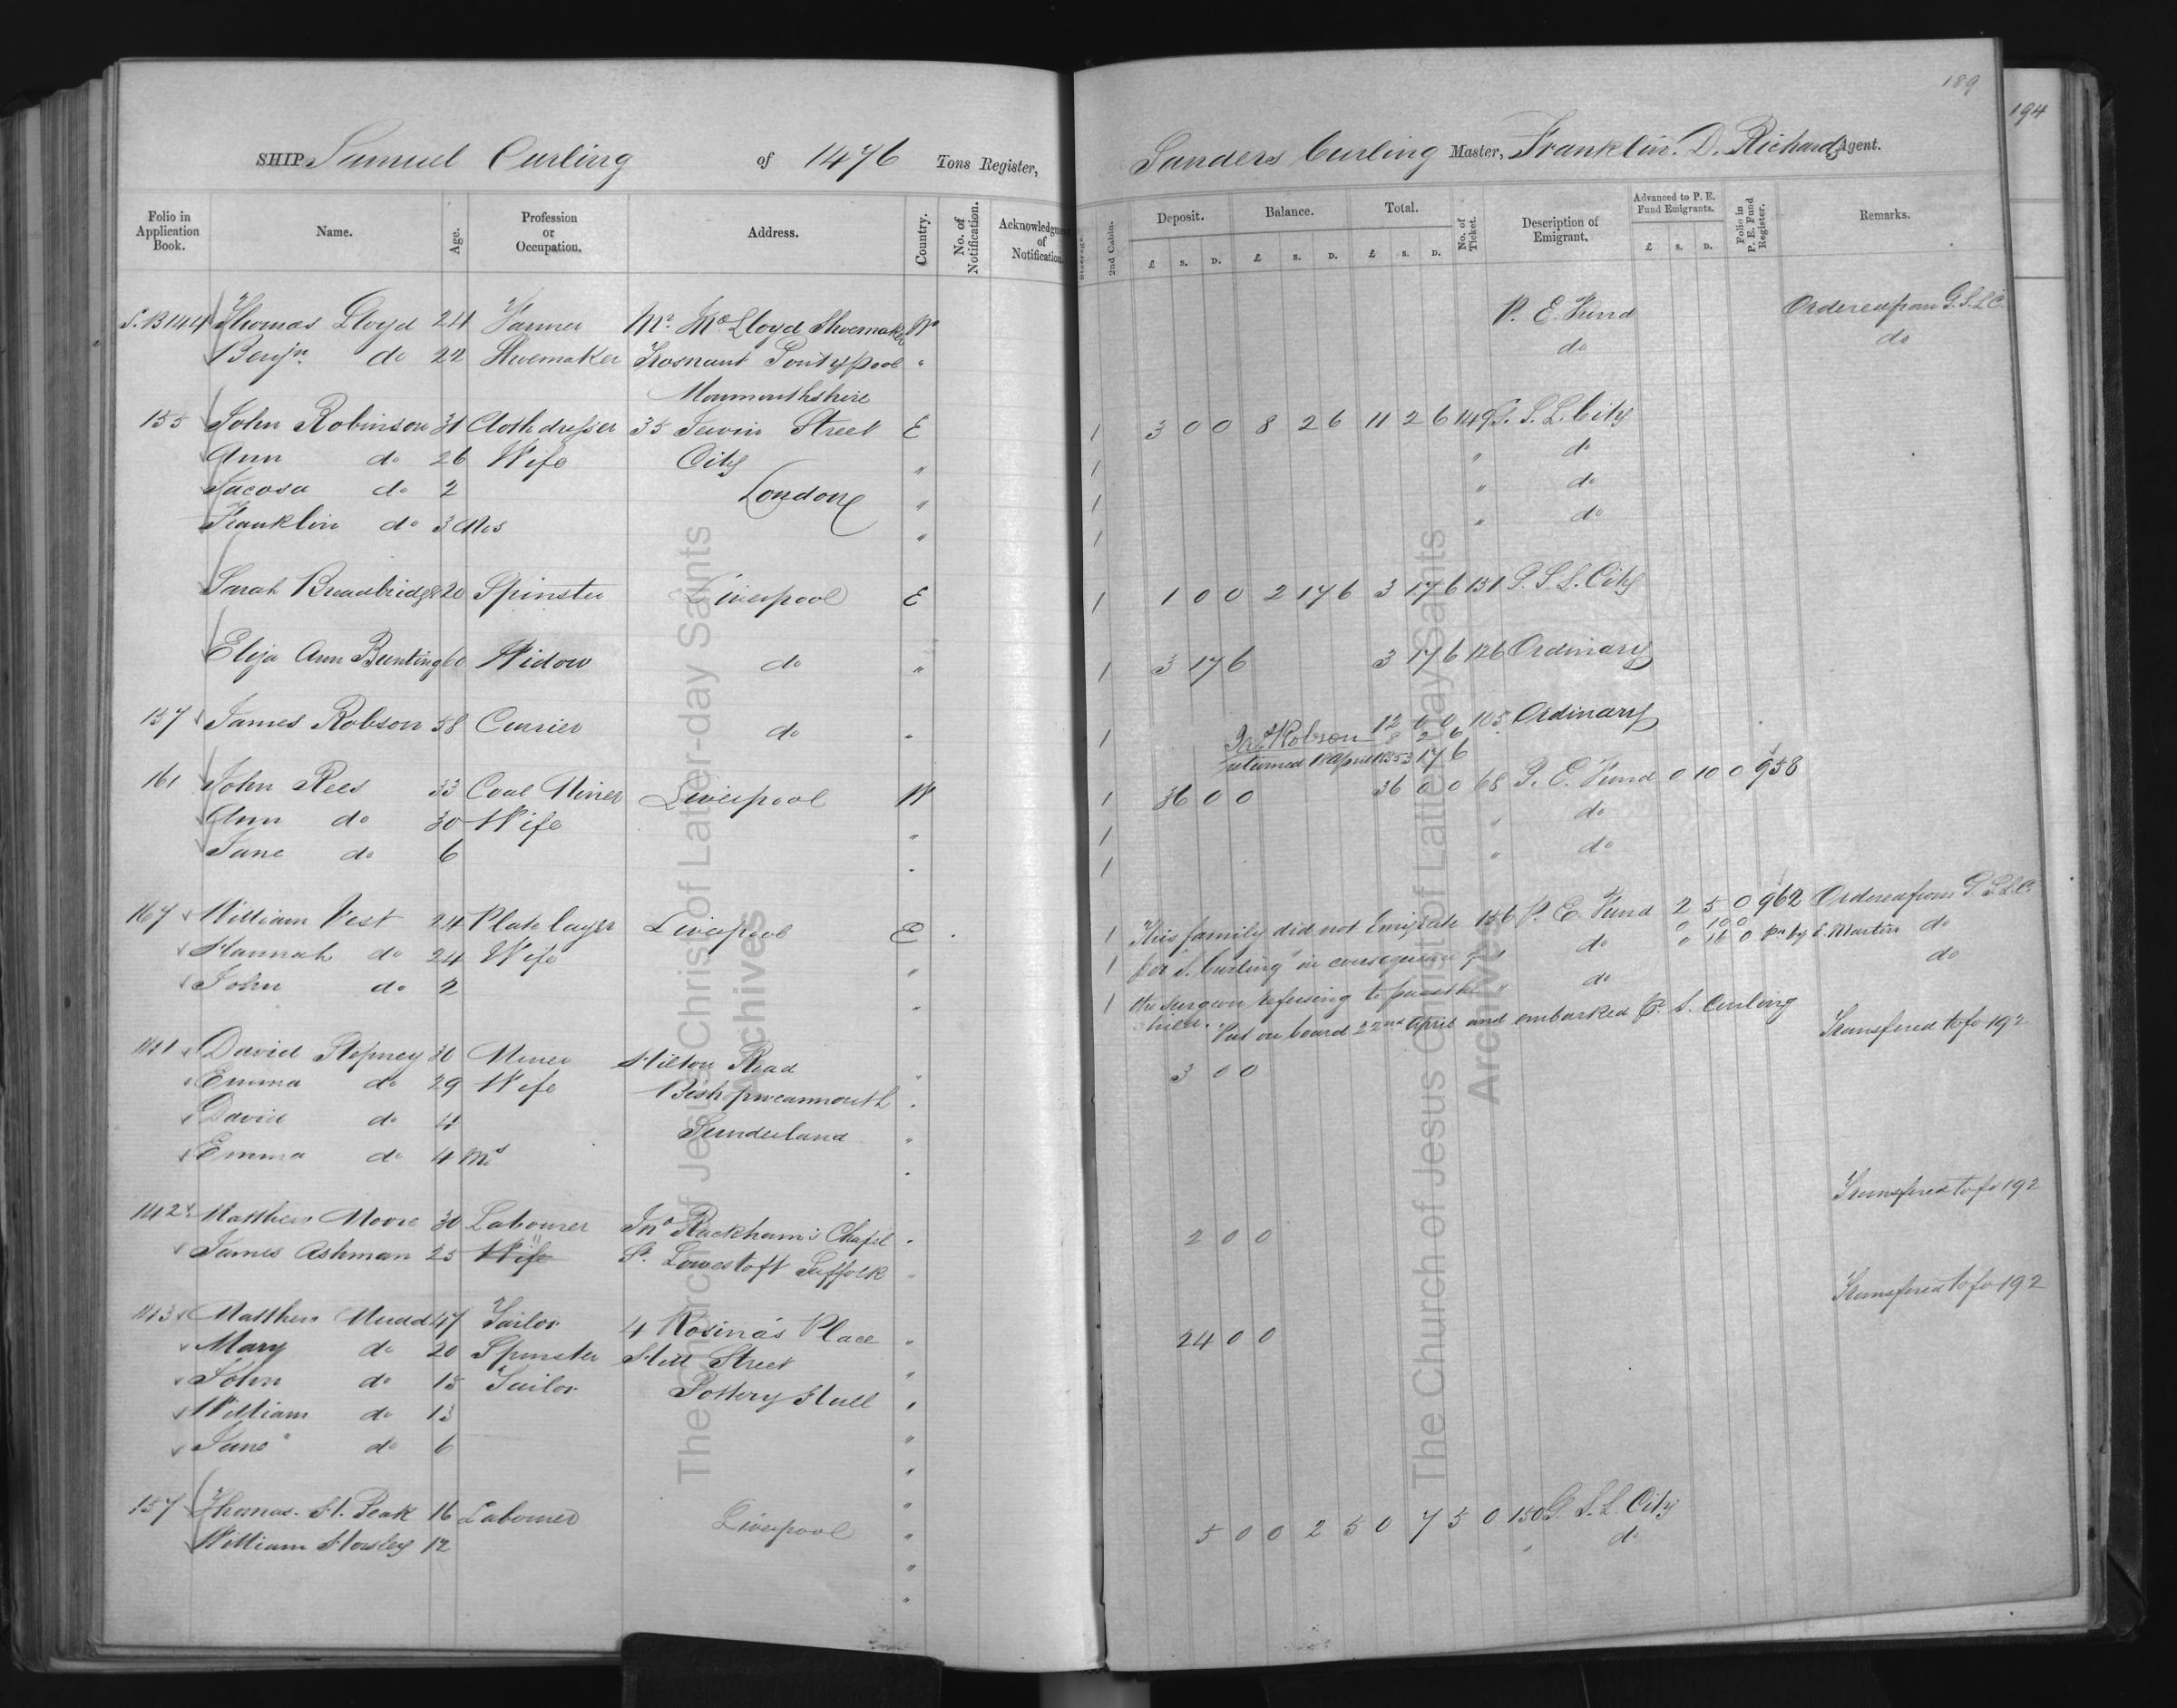 189
194
SHIP Samuel Curling of 1476 Tons Register,
Sanders Curling Master, Franklin. D. Richards Agent.
Folio in Application Book. Name. Age. Profession or Occupation. Address. Country. No. of Notification. Acknowledgment of Notification.
Steerage. 2nd Cabin. Deposit. Balance. Total. No. of Ticket. Description of Emigrant. Advanced to P. E. Fund Emigrants. Folio in P. E. Fund Register. Remarks.
£ S. D. £ S. D. £ S. D. £ S. D.
S.B144 Thomas Lloyd 24 Mr. Lloyd Shoemaker W P. E. Fund Ordered from G.S.L.C.
Benjn. do 22 Shoemaker Trosnant Pontypool " do do
Monmouthshire
155 John Robinson 31 Clothdresser 35 Jewin Street E 1 3 0 0 8 2 6 11 2 6 149 G. S. L. City
Ann do 26 Wife City " 1 " do
do 2 London " 1 " do
Franklin do 3 Mos " 1 " do
Sarah Broadbridge 20 Spinster Liverpool E 1 1 0 0 2 17 6 3 17 6 151 G. S. L. City
Eliza Ann Bunting 60 Widow do " 1 3 17 6 3 17 6 126 Ordinary
157 James Robson 58 Currier do " 1 12 0 0 105 Ordinary
Robson 8 2 6
returned 18 April 1855 3 17 6
161 John Rees 33 Coal Miner Liverpool W 1 36 0 0 36 0 0 68 P. E. Fund 0 10 0 958
Ann do 30 Wife " 1 " do
Jane do 6 " 1 " do
167 William West 24 Plate layer Liverpool E 1 This family did not Emigrate 156 P. E. Fund 2 5 0 962 Ordered from G.S.L.C.
0 10 0
Hannah do 24 Wife " 1 per "S. Curling" in consequence of do 0 16 0 pd by E. Martin do
John do 2 " 1 the surgeon refusing to pass the do do
child. Put on board 22nd April and embarked pr. S. Curling
141 David Stepney 30 Miner Hilton Road " 3 0 0 Transfered to fo 192
Emma do 29 Wife Bishopwearmouth "
David do 4 Sunderland "
Emma do 4 Ms "
142 Matthew Moore 30 Labourer Jno Rackham's Chapel " 2 0 0 Transfered to fo 192
James Ashman 25 " Wife St. Lowestoft Suffolk "
143 Matthew Mudd 47 Tailor 4 Rosina's Place " 24 0 0 Transfered to fo 192
Mary do 20 Spinster Hill Street "
John do 15 Tailor Pottery Hull "
William do 13 "
Jane do 6 "
157 Thomas. H. Peak 16 Labourer Liverpool " 5 0 0 2 5 0 7 5 0 150 G. S. L. City
William Horsley 12 " " do
The Church of Jesus Christ of Latter-day Saints
Archives
The Church of Jesus Christ of Latter-day Saints
Archives